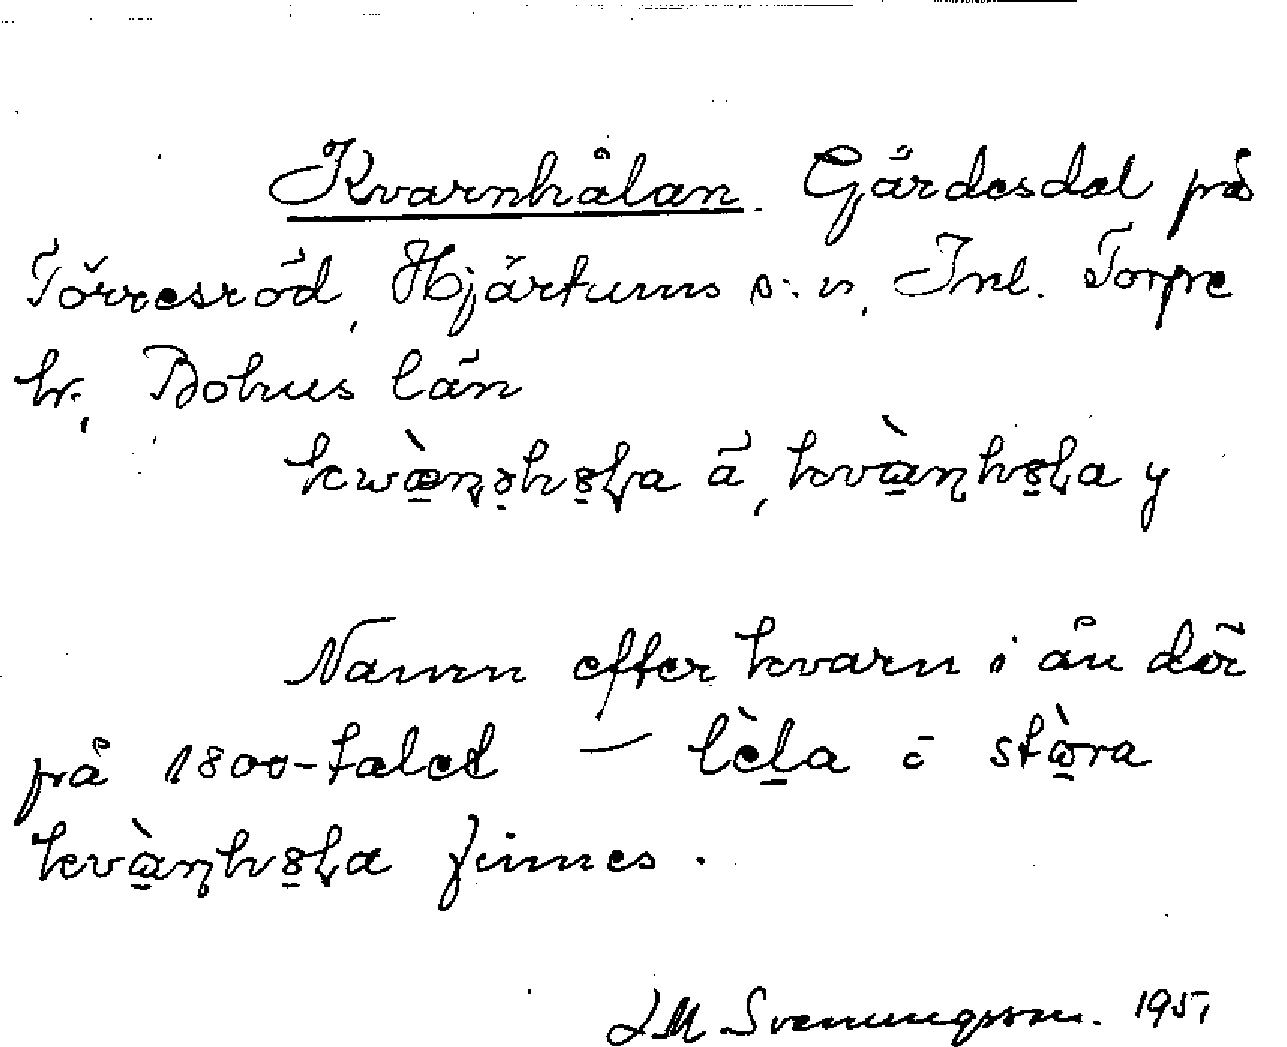 Kvarnhålan. Gärdesdal på
Törresröd, Hjärtums s:n, Inl. Torpe
hr, Bohus län
kwæ̀ṇəhȣḷa ä, kvàṇhȣḷa y
Namn efter kvarn i ån där
på 1800-talet — lèḷa ō stòra
kvàṇhȣḷa finnes.
LM Svenungsson. 1951